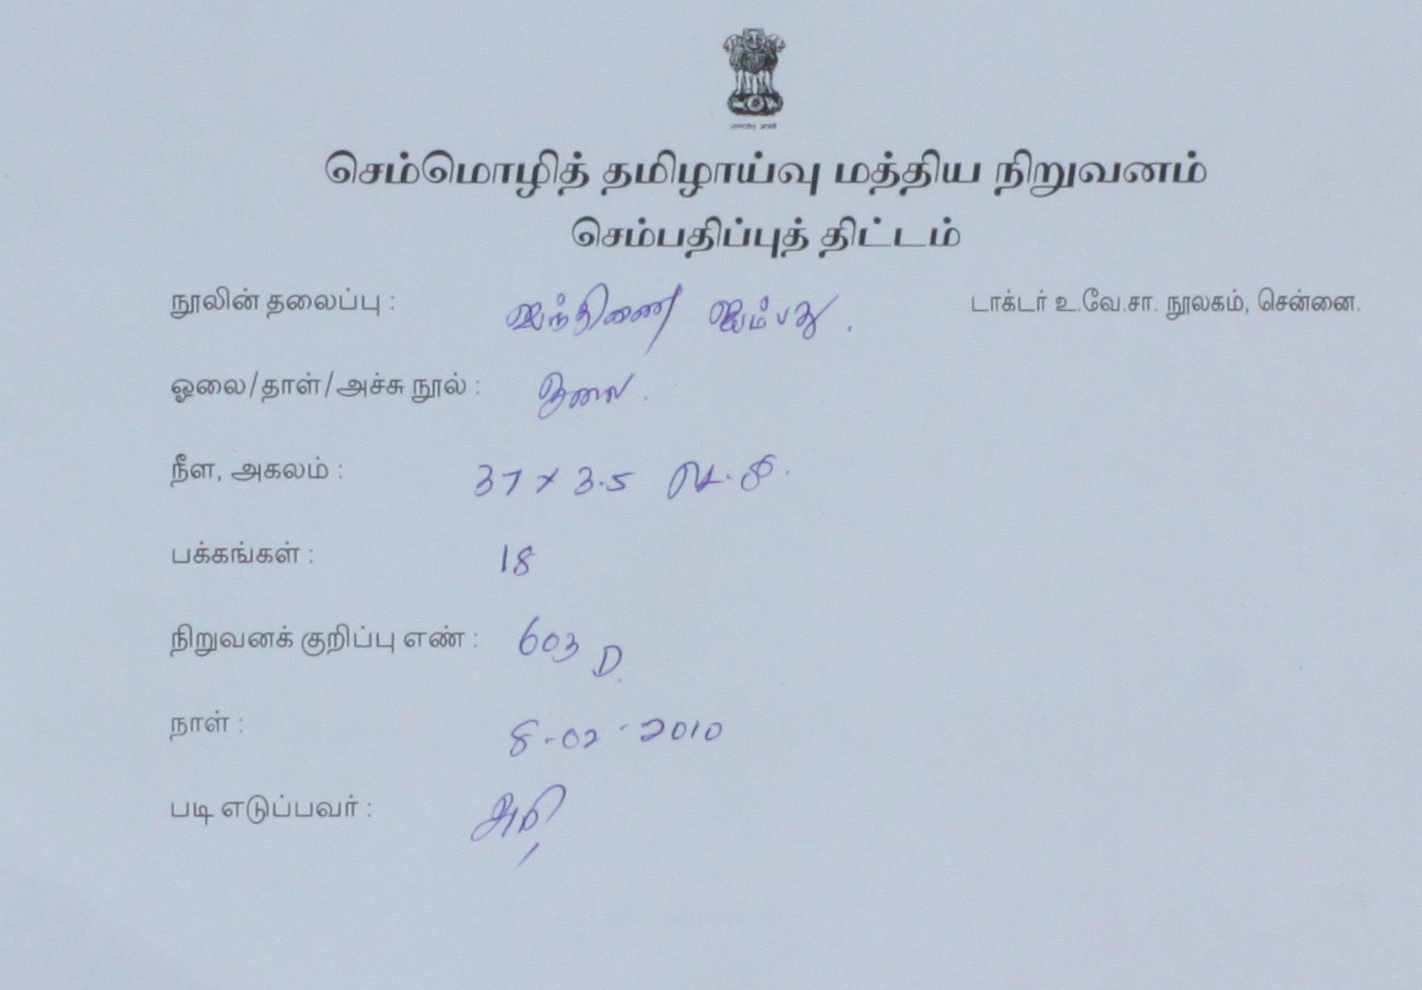 செம்மொழித் தமிழாய்வு மத்திய நிறுவனம்
செம்பதிப்புத் திட்டம்
நூலின் தலைப்பு : ஐந்திணை ஐம்பது. டாக்டர் உ.வே.சா. நூலகம், சென்னை.
ஓலை/தாள்/அச்சு நூல் : ஓலை.
நீள, அகலம் : 37 x 3.5 செ.மீ.
பக்கங்கள் : 18
நிறுவனக் குறிப்பு எண் : 603 D.
நாள் : 8-02-2010
படி எடுப்பவர் :